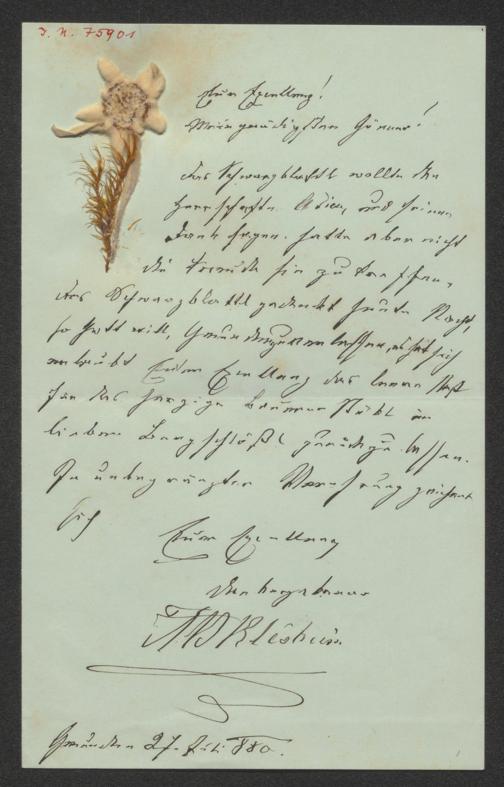 J. N. 75901
Euer Exzellenz!
Mein gnädigster Gönner!
Das Schwarzblattl wollte den
Herrschaften Adieu, und seinen
Dank sagen. hatte aber nicht
die Freude sie zu treffen,
Das Schwarzblattl gedenkt heute Nacht,
so Gott will, Gmunden zu verlassen, es hat sich
erlaubt Euer Exzellenz das leere
für das herzige Stübl im
lieben Bergschlößl zurückzulassen.
In unbegrenzter Verehrung zeichnet
sich
Euer Exzellenz
dankergebener
Klesheim
Gmunden 27. Juli 880.